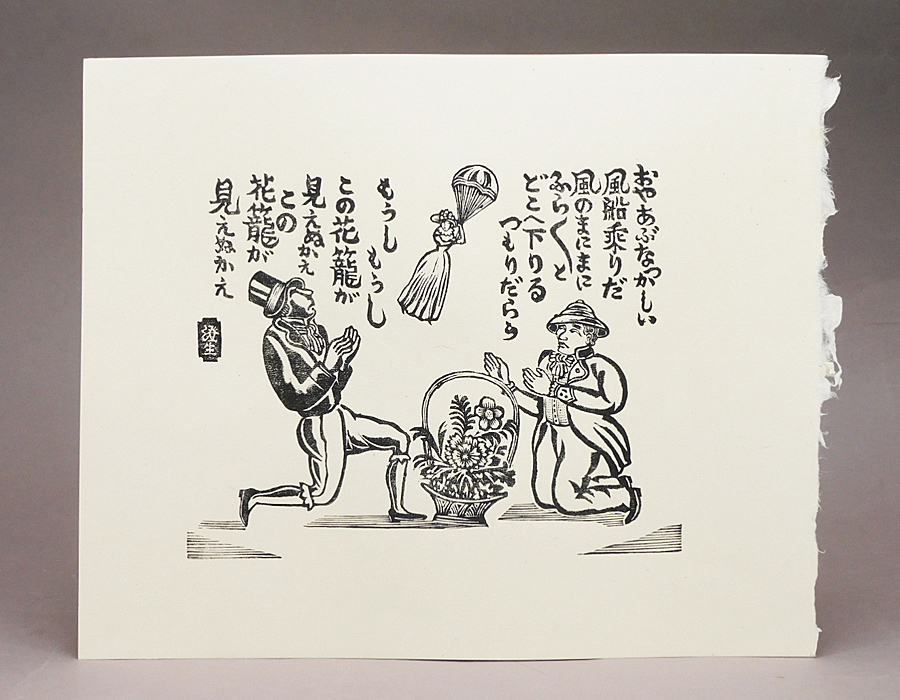 おやあぶなつかしい
風船乘りだ
風のまにまに
ふら〱と
どこへ下りる
つもりだらう
もうしもうし
この花籠が
見えぬかえ
この
花籠が
見えぬかえ
澄生